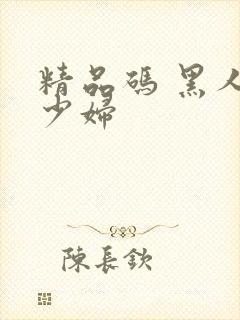 精品碼 黑人
少婦
陳長欽